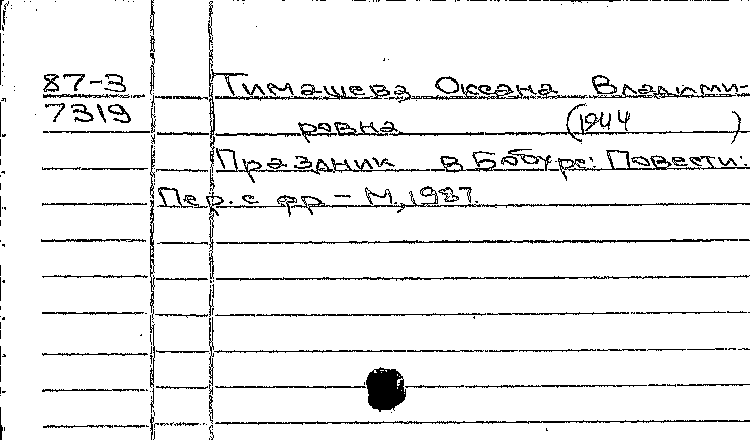 87-3 Тимашева Оксана Владими-
7319 ровна (1944 )
Праздник в Бобуре: Повести:
Пер. с фр - М, 1987.